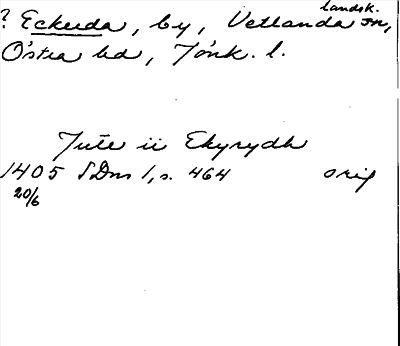 landsk.
? Eckerda, by, Vetlanda sn,
Östra hd, Jönk. l.
Jute ii Ekyrydh
1405 SDns 1, s. 464 orig
20/6